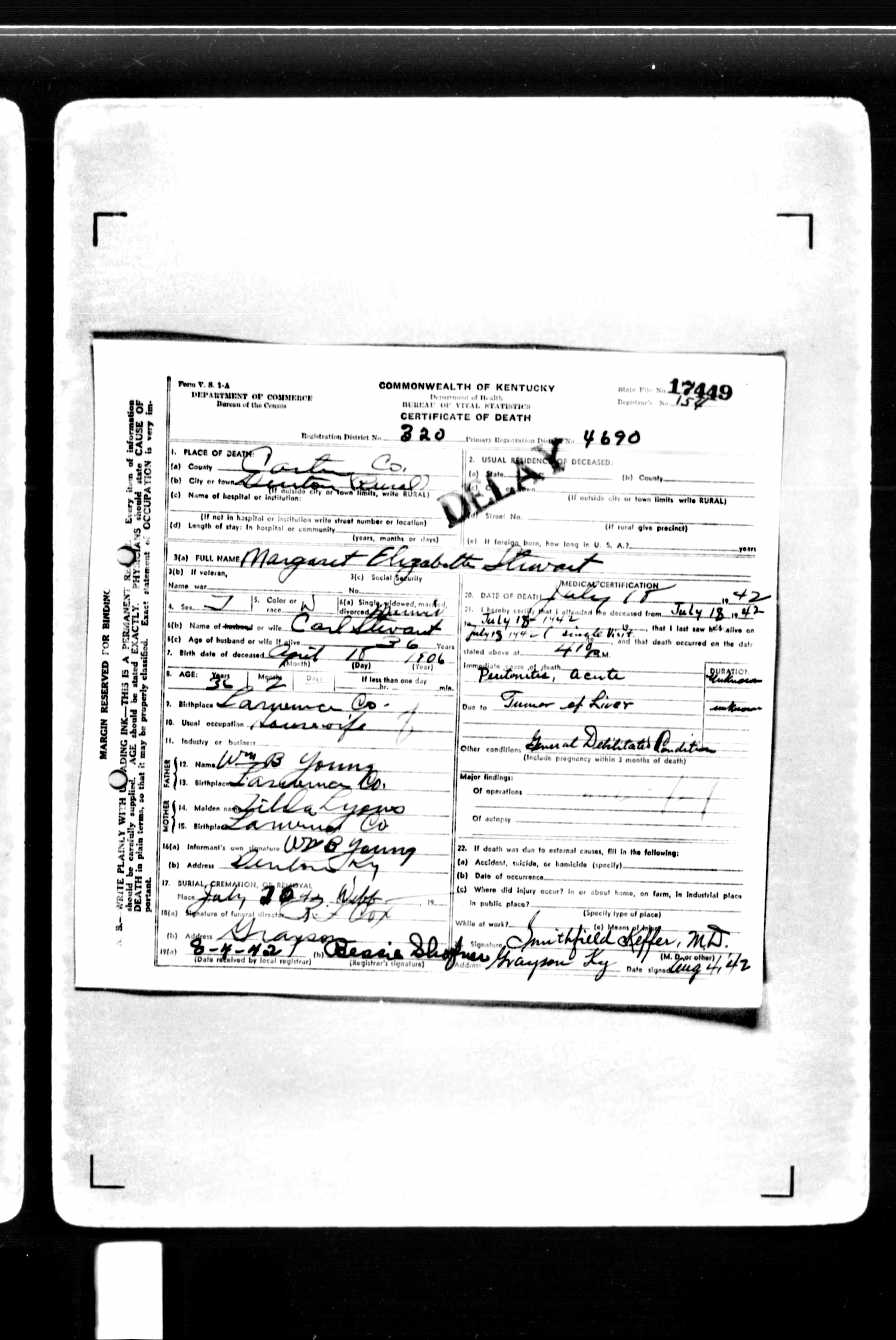 Form V. S. 1-A
DEPARTMENT OF COMMERCE
Bureau of the Census
COMMONWEALTH OF KENTUCKY
Department of Health
BUREAU OF VITAL STATISTICS
CERTIFICATE OF DEATH
State File No. 17449
Registrar's No. 154
Registration District No. 320 Primary Registration District No. 4690
DELAY
1. PLACE OF DEATH:
(a) County Carter Co.
(b) City or town Denton (Rural)
(If outside city or town limits, write RURAL)
(c) Name of hospital or institution:
(If not in hospital or institution write street number or location)
(d) Length of stay: In hospital or community
(years, months or days)
2. USUAL RESIDENCE OF DECEASED:
(a) State (b) County
(If outside city or town limits write RURAL)
Street No.
(If rural give precinct)
(e) If foreign born, how long in U. S. A.? years
3(a) FULL NAME Margaret Elizabeth Stewart
3(b) If veteran, 3(c) Social Security
Name war No.
4. Sex 5. Color or race W 6(a) Single, widowed, married, divorced
6(b) Name of husband or wife Carl Stewart
6(c) Age of husband or wife if alive 36 Years
7. Birth date of deceased April 18 1906
(Month) (Day) (Year)
8. AGE: Years Months Days If less than one day
36 2 hr. min.
9. Birthplace Lawrence Co.
10. Usual occupation Housewife
11. Industry or business
FATHER
12. Name Wm B Young
13. Birthplace Lawrence Co.
MOTHER
14. Maiden name Lyons
15. Birthplace Lawrence Co
16(a) Informant's own signature Wm B Young
(b) Address Denton Ky
17. BURIAL, CREMATION, OR REMOVAL
Place July 20 42 Webb 19
18(a) Signature of funeral director Cox
(b) Address Grayson
19(a) 8-4-42 (b) Bessie
(Date received by local registrar) (Registrar's signature)
MEDICAL CERTIFICATION
20. DATE OF DEATH July 18 1942
21. I hereby certify that I attended the deceased from July 18 1942
to July 18 1942, that I last saw her alive on
July 18 1942 (single Visit), and that death occurred on the date
stated above at P.M.
Immediate cause of death DURATION
Peritonitis, acute unknown
Due to Tumor of Liver unknown
Other conditions General Debilitated Condition
(Include pregnancy within 3 months of death)
Major findings:
Of operations
Of autopsy
22. If death was due to external causes, fill in the following:
(a) Accident, suicide, or homicide (specify)
(b) Date of occurrence
(c) Where did injury occur? In or about home, on farm, in industrial place
in public place?
(Specify type of place)
While at work? (e) Means of injury
Signature Smithfield Keffer, M.D.
(M. D. or other)
Address Grayson Ky Date signed Aug 4, 42
MARGIN RESERVED FOR BINDING
WRITE PLAINLY WITH UNFADING INK—THIS IS A PERMANENT Every item of information
should be carefully supplied. AGE should be stated EXACTLY. PHYSICIANS should state CAUSE OF
DEATH in plain terms, so that it may be properly classified. Exact statement of OCCUPATION is very im-
portant.